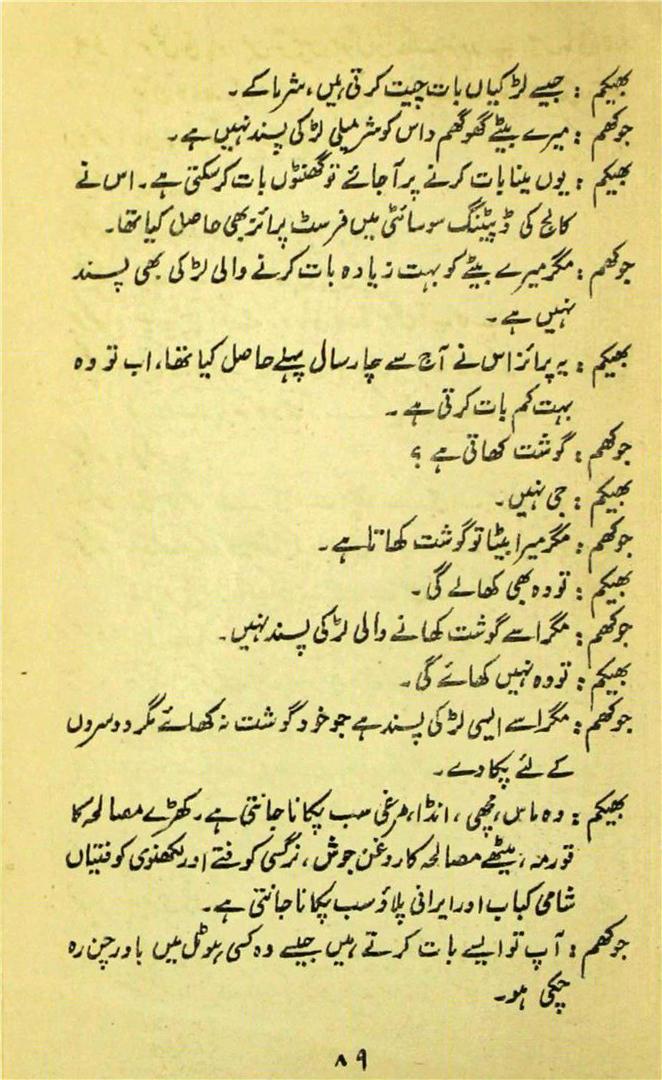 بھیکم : جیسے لڑکیاں بات چیت کرتی ہیں، شرما کے۔
جوکھم : میرے بیٹے گھوگھم داس کو شرمیلی لڑکی پسند نہیں ہے۔
بھیکم : یوں مینا بات کرنے پر آجائے تو گھنٹوں بات کرسکتی ہے۔ اس نے
کالج کی ڈیبیٹنگ سوسائٹی میں فرسٹ پرائز بھی حاصل کیا تھا۔
جوکھم : مگر میرے بیٹے کو بہت زیادہ بات کرنے والی لڑکی بھی پسند
نہیں ہے۔
بھیکم : یہ پرائز اس نے آج سے چار سال پہلے حاصل کیا تھا، اب تو وہ
بہت کم بات کرتی ہے۔
جوکھم : گوشت کھاتی ہے ؟
بھیکم : جی نہیں۔
جوکھم : مگر میرا بیٹا تو گوشت کھاتا ہے۔
بھیکم : تو وہ بھی کھالے گی۔
جوکھم : مگر اسے گوشت کھانے والی لڑکی پسند نہیں۔
بھیکم : تو وہ نہیں کھائے گی۔
جوکھم : مگر اسے ایسی لڑکی پسند ہے جو خود گوشت نہ کھائے مگر دوسروں
کے لئے پکا دے۔
بھیکم : وہ ماس، مچھی، انڈا، مرغی سب پکانا جانتی ہے۔ کھڑے مصالحہ کا
قورمہ، میٹھے مصالحہ کا روغن جوش، نرگسی کوفتے اور لکھنوی کوفتیاں
شامی کباب اور ایرانی پلاؤ سب پکانا جانتی ہے۔
جوکھم : آپ تو ایسے بات کرتے ہیں جیسے وہ کسی ہوٹل میں باورچن رہ
چکی ہو۔
۸۹